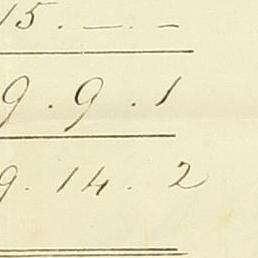 15 . — . —
9 . 9 . 1
9 . 14 . 2